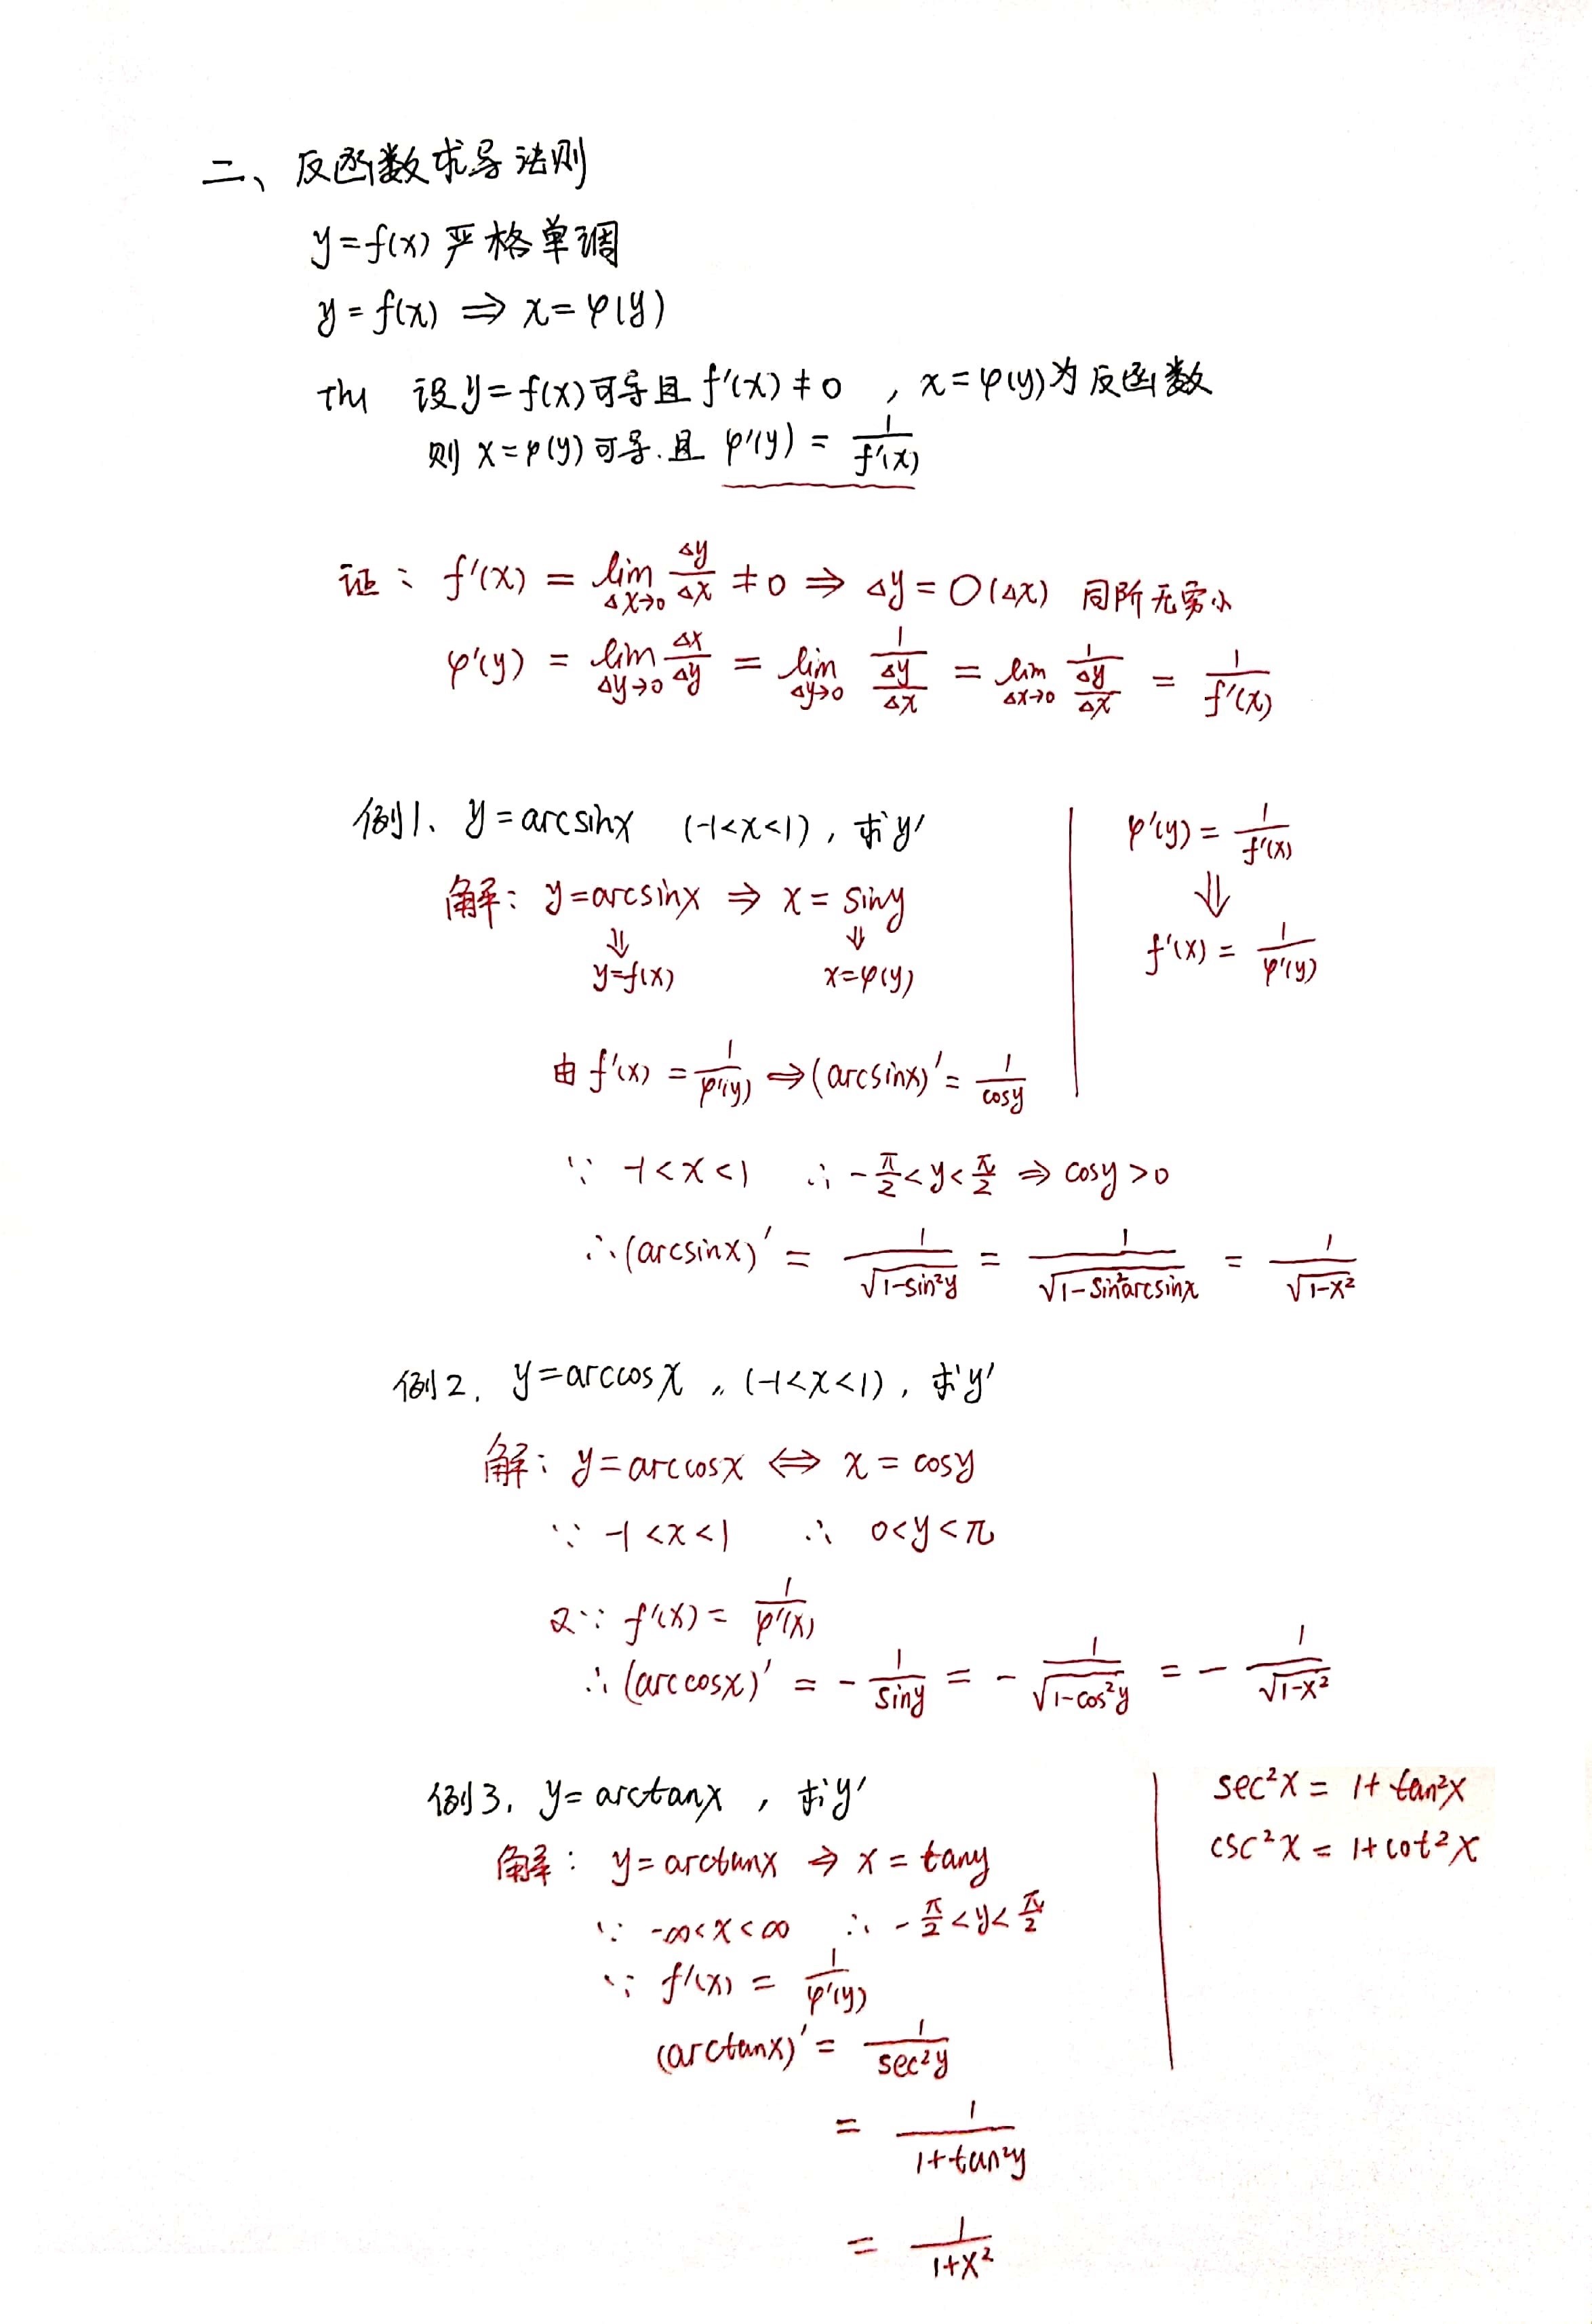 二、反函数求导法则
y=f(x) 严格单调
y=f(x) ⇒ x=φ(y)
Th1 设y=f(x)可导且f'(x)≠0 , x=φ(y)为反函数
则 x=φ(y)可导.且 φ'(y) = 1/f'(x)
证: f'(x) = lim_{Δx→0} Δy/Δx ≠0 ⇒ Δy=O(Δx) 同阶无穷小
φ'(y) = lim_{Δy→0} Δx/Δy = lim_{Δy→0} 1/(Δy/Δx) = lim_{Δx→0} 1/(Δy/Δx) = 1/f'(x)
例1、y=arcsinx (-1<x<1) , 求y'
解: y=arcsinx ⇒ x=siny
⇓ ⇓
y=f(x) x=φ(y)
φ'(y) = 1/f'(x)
⇓
f'(x) = 1/φ'(y)
由 f'(x) = 1/φ'(y) ⇒ (arcsinx)' = 1/cosy
∵ -1<x<1 ∴ -π/2<y<π/2 ⇒ cosy>0
∴ (arcsinx)' = 1/√(1-sin²y) = 1/√(1-sin²arcsinx) = 1/√(1-x²)
例2. y=arccosx , (-1<x<1) , 求y'
解: y=arccosx ⇔ x=cosy
∵ -1<x<1 ∴ 0<y<π
又∵ f'(x) = 1/φ'(x)
∴ (arccosx)' = - 1/siny = - 1/√(1-cos²y) = - 1/√(1-x²)
例3. y=arctanx , 求y'
解: y=arctanx ⇒ x=tany
∵ -∞<x<∞ ∴ -π/2<y<π/2
∵ f'(x) = 1/φ'(y)
(arctanx)' = 1/sec²y
= 1/(1+tan²y)
= 1/(1+x²)
sec²x = 1+tan²x
csc²x = 1+cot²x